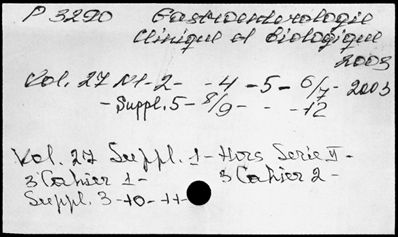 P 3290 Gastroenterologie
Clinique et Biologique
2003
Vol. 27 N1-2- -4 -5- 6/7- 2003
-Suppl. 5- 8/9- - -12
Vol. 27 Suppl. 1- Hors Serie II-
3 Cahier 1- 3 Cahier 2-
Suppl. 3-10-11-